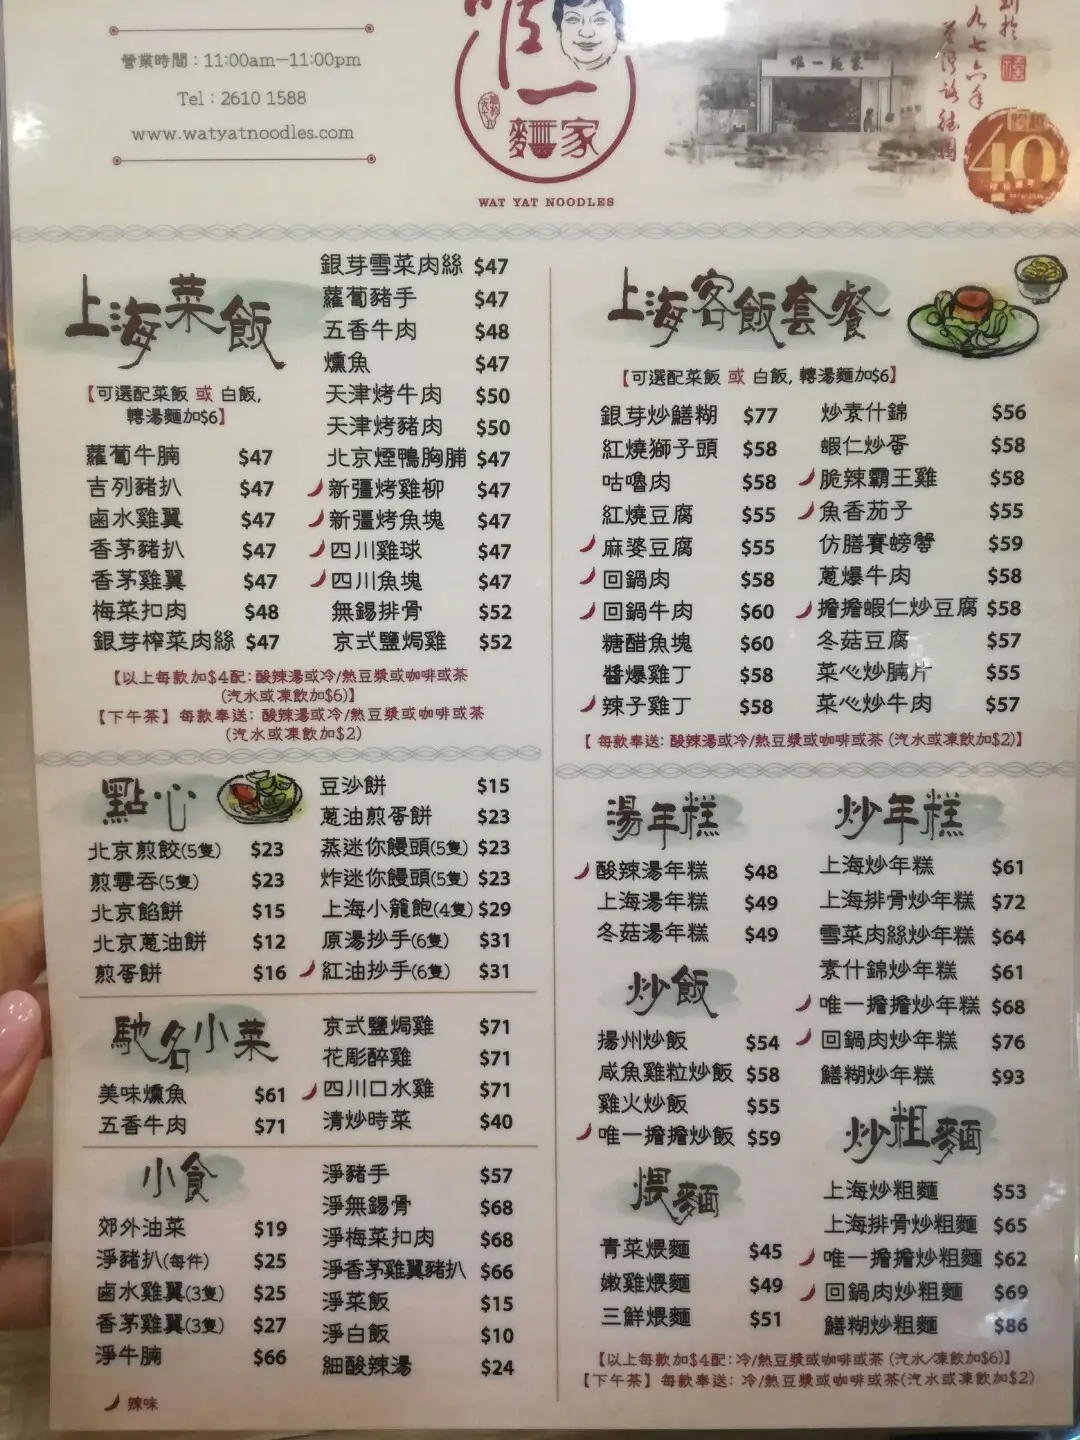 營業時間：11:00am－11:00pm
Tel：2610 1588
www.watyatnoodles.com
唯一
麵家
WAT YAT NOODLES
唯一麵家
40
上海菜飯
【可選配菜飯 或 白飯,
轉湯麵加$6】
蘿蔔牛腩 $47
吉列豬扒 $47
鹵水雞翼 $47
香茅豬扒 $47
香茅雞翼 $47
梅菜扣肉 $48
銀芽榨菜肉絲 $47
銀芽雪菜肉絲 $47
蘿蔔豬手 $47
五香牛肉 $48
燻魚 $47
天津烤牛肉 $50
天津烤豬肉 $50
北京煙鴨胸脯 $47
新彊烤雞柳 $47
新彊烤魚塊 $47
四川雞球 $47
四川魚塊 $47
無錫排骨 $52
京式鹽焗雞 $52
【以上每款加$4配: 酸辣湯或冷/熱豆漿或咖啡或茶
(汽水或凍飲加$6)】
【下午茶】每款奉送: 酸辣湯或冷/熱豆漿或咖啡或茶
(汽水或凍飲加$2)
上海客飯套餐
【可選配菜飯 或 白飯, 轉湯麵加$6】
銀芽炒鱔糊 $77
紅燒獅子頭 $58
咕嚕肉 $58
紅燒豆腐 $55
麻婆豆腐 $55
回鍋肉 $58
回鍋牛肉 $60
糖醋魚塊 $60
醬爆雞丁 $58
辣子雞丁 $58
炒素什錦 $56
蝦仁炒蛋 $58
脆辣霸王雞 $58
魚香茄子 $55
仿膳賽螃蟹 $59
蔥爆牛肉 $58
擔擔蝦仁炒豆腐 $58
冬菇豆腐 $57
菜心炒腩片 $55
菜心炒牛肉 $57
【 每款奉送: 酸辣湯或冷/熱豆漿或咖啡或茶 (汽水或凍飲加$2)】
點心
北京煎餃(5隻) $23
煎雲吞(5隻) $23
北京餡餅 $15
北京蔥油餅 $12
煎蛋餅 $16
豆沙餅 $15
蔥油煎蛋餅 $23
蒸迷你饅頭(5隻) $23
炸迷你饅頭(5隻) $23
上海小籠飽(4隻) $29
原湯抄手(6隻) $31
紅油抄手(6隻) $31
馳名小菜
美味燻魚 $61
五香牛肉 $71
京式鹽焗雞 $71
花彫醉雞 $71
四川口水雞 $71
清炒時菜 $40
小食
郊外油菜 $19
淨豬扒(每件) $25
鹵水雞翼(3隻) $25
香茅雞翼(3隻) $27
淨牛腩 $66
淨豬手 $57
淨無錫骨 $68
淨梅菜扣肉 $68
淨香茅雞翼豬扒 $66
淨菜飯 $15
淨白飯 $10
細酸辣湯 $24
辣味
湯年糕
酸辣湯年糕 $48
上海湯年糕 $49
冬菇湯年糕 $49
炒飯
揚州炒飯 $54
咸魚雞粒炒飯 $58
雞火炒飯 $55
唯一擔擔炒飯 $59
煨麵
青菜煨麵 $45
嫩雞煨麵 $49
三鮮煨麵 $51
炒年糕
上海炒年糕 $61
上海排骨炒年糕 $72
雪菜肉絲炒年糕 $64
素什錦炒年糕 $61
唯一擔擔炒年糕 $68
回鍋肉炒年糕 $76
鱔糊炒年糕 $93
炒粗麵
上海炒粗麵 $53
上海排骨炒粗麵 $65
唯一擔擔炒粗麵 $62
回鍋肉炒粗麵 $69
鱔糊炒粗麵 $86
【以上每款加$4配: 冷/熱豆漿或咖啡或茶 (汽水/凍飲加$6)】
【下午茶】每款奉送: 冷/熱豆漿或咖啡或茶(汽水或凍飲加$2)